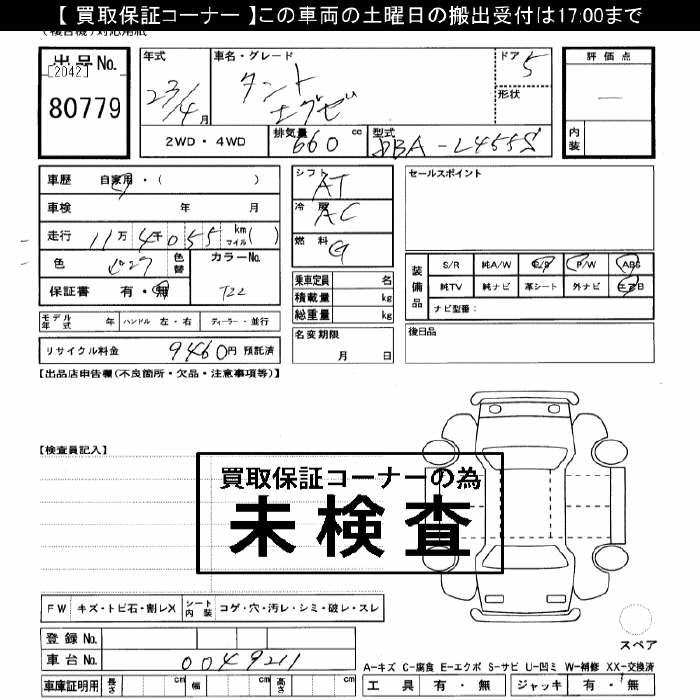 【 買取保証コーナー 】この車両の土曜日の搬出受付は17:00まで
出品No.
[2042]
80779
年式
23/4月
車名・グレード
タント
エグゼ
ドア 5
形状
2WD・4WD
排気量 660 cc
型式 DBA-L455S
評価点
—
内装
車歴 自家用・( )
車検 年 月
走行 11万4千055 km マイル( )
色 色替 カラーNo.
T22
保証書 有・無
モデル年式 年 ハンドル 左・右 ディーラー・並行
リサイクル料金 9460円 預託済
シフト AT
冷房 AC
燃料 G
乗車定員 名
積載量 kg
総重量 kg
名変期限
月 日
セールスポイント
装備品
S/R 純A/W P/S P/W ABS
純TV 純ナビ 革シート 外ナビ エアB
ナビ型番:
後日品
【出品店申告欄(不良箇所・欠品・注意事項等)】
【検査員記入】
買取保証コーナーの為
未検査
FW キズ・トビ石・割レX シート内装 コゲ・穴・汚レ・シミ・破レ・スレ
登録No.
車台No. 0049211
車庫証明用 長さ cm 幅 cm 高さ cm
スペア
A−キズ C−腐食 E−エクボ S−サビ U−凹ミ W−補修 XX−交換済
工具 有・無 ジャッキ 有・無